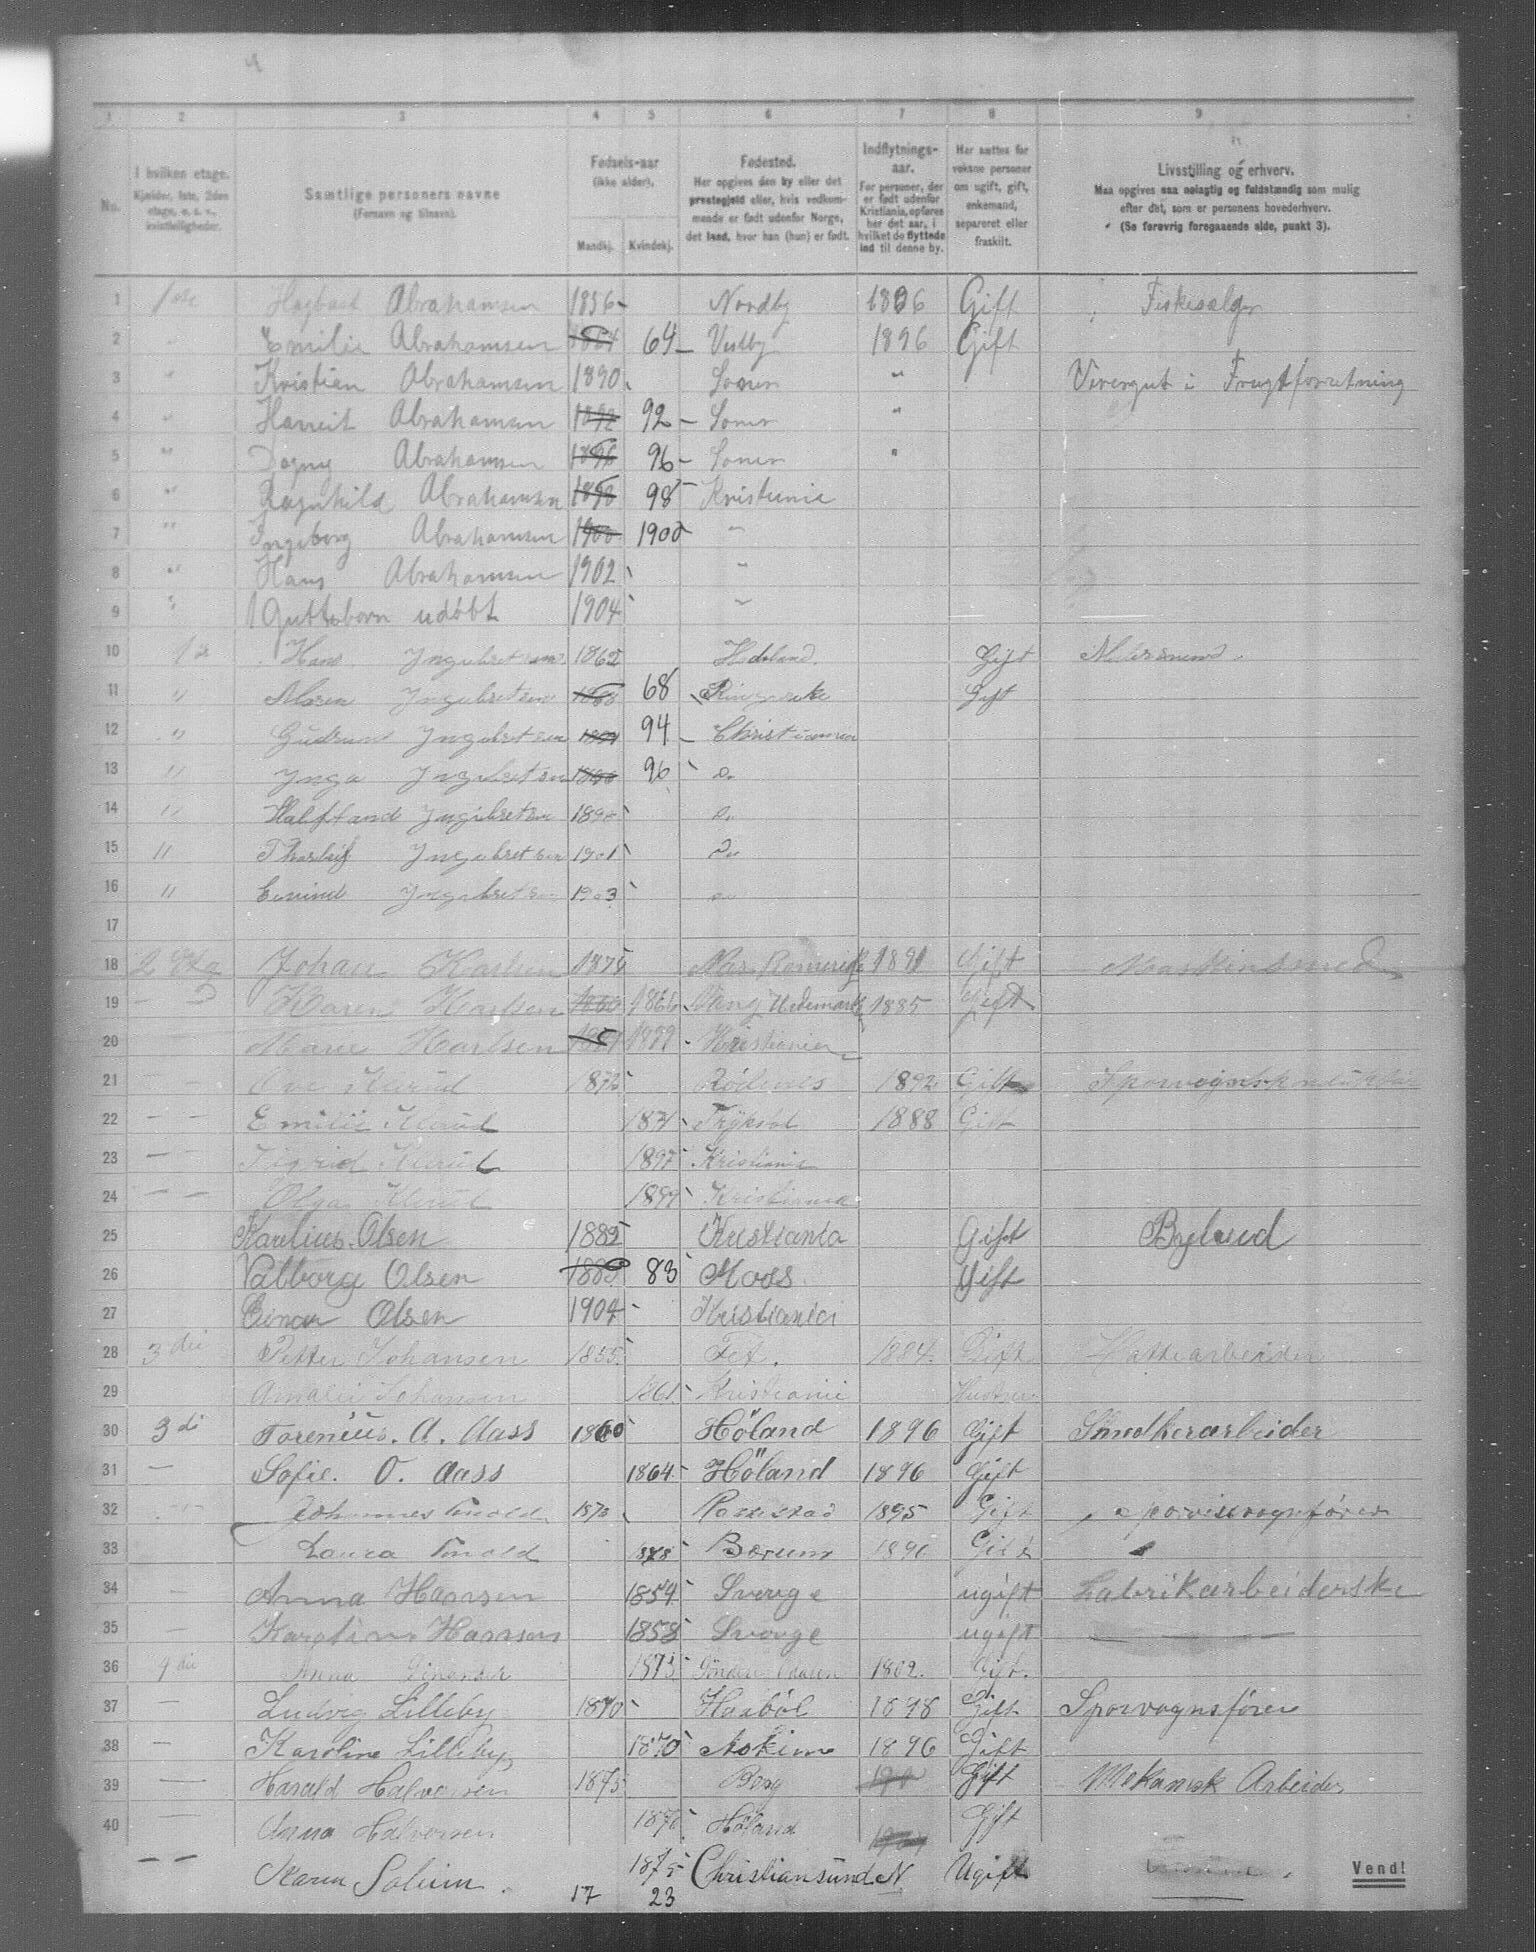 1 2 3 4 5 6 7 8 9
No.
I hvilken etage.
Kjælder, 1ste, 2den
etage, o. s. v.,
kvistleiligheder.
Samtlige personers navne
(Fornavn og tilnavn).
Fødsels-aar
(ikke alder).
Mandkj. Kvindekj.
Fødested.
Her opgives den by eller det
præstegjeld eller, hvis vedkom-
mende er født udenfor Norge,
det land, hvor han (hun) er født.
Indflytnings-
aar.
For personer, der
er født udenfor
Kristiania, opføres
her det aar, i
hvilket de flyttede
ind til denne by.
Her sættes for
voksne personer
om ugift, gift,
enkemand,
separeret eller
fraskilt.
Livsstilling og erhverv.
Maa opgives saa nøiagtig og fuldstændig som mulig
efter det, som er personens hovederhverv.
(Se forøvrig foregaaende side, punkt 3).
1 1ste Hagbart Abrahamsen 1856 Nordby 1896 Gift Fiskesælger
2 " Emilie Abrahamsen 1864 64 Vestby 1896 Gift
3 " Kristian Abrahamsen 1890 Soner " Visergut i Frugtforretning
4 " Abrahamsen 1892 92 Soner "
5 " Dagny Abrahamsen 1896 96 Soner "
6 " Ragnhild Abrahamsen 1898 98 Kristiania
7 " Ingeborg Abrahamsen 1900 1900 "
8 " Hans Abrahamsen 1902 "
9 " 1 Guttebarn udøbt 1904 "
10 1ste Hans Yngebretsen 1862 Hadeland Gift
11 " Maren Yngebretsen 1868 68 Ringerike Gift
12 " Gudrun Yngebretsen 1894 94 Christiania
13 " Ynga Yngebretsen 1896 96 Do
14 " Halftand Yngebretsen 1898 Do
15 " Thorleif Yngebretsen 1901 Do
16 " Eivind Yngebretsen 1903 Do
17
18 2 Etg Johan Karlsen 1874 Næs Romerike 1891 Gift Maskinsmed
19 Karen Karlsen 1866 Vang Hedemark 1885 Gift
20 Marie Karlsen Kristiania
21 Ove Klerud 1872 Rødenes 1892 Gift Sporvognskonduktør
22 Emilie Klerud 1871 Trykstad 1888 Gift
23 Sigrid Klerud 1897 Kristiania
24 Olga Klerud 1899 Kristiania
25 Karelius Olsen 1882 Kristiania Gift Bybud
26 Valborg Olsen 1883 83 Moss Gift
27 Einar Olsen 1904 Kristiania
28 3die Petter Johansen 1855 Fet. 1884 Gift Hattearbeider
29 Amalie Johansen 1861 Kristiania Hustru
30 3di Torenius. A. Aass 1860 Höland 1896 Gift Snedkerarbeider
31 Sofie. O. Aass 1864 Höland 1896 Gift
32 Johannes 1873 Rakkestad 1895 Gift
33 Laura 1878 Bærum Gift
34 Anna Hansen 1854 Sverige ugift Fabrikarbeiderske
35 Hansen 1858 Sverige ugift
36 4die Anna 1873 1902 Gift
37 Ludvig Lilleby 1870 Haabøl 1898 Gift Sporvognsfører
38 Karoline Lilleby 1870 Askim 1896 Gift
39 Harald Halvorsen 1875 Berg Gift Mekanisk Arbeider
40 Anna Halvorsen 1876 Høland Gift
Karen Solum 1875 Christiansund N. Ugift
17 23
Vend!